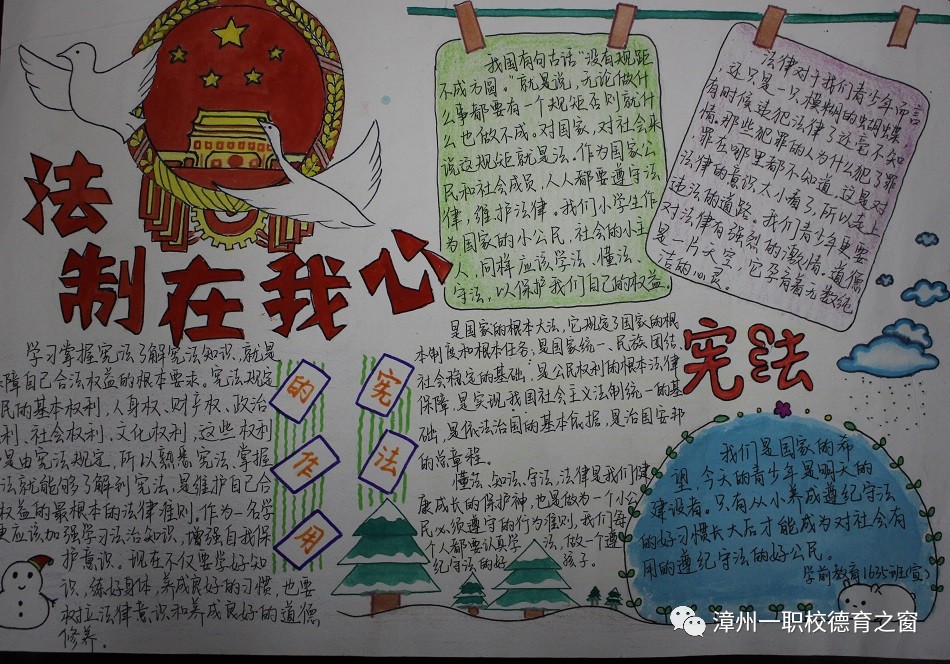 法
制在我心
我国有句古话“没有规距
不成方圆。”就是说,无论做什
么事都要有一个规矩否则就什
么也做不成。对国家,对社会来
说这规矩就是法。作为国家公
民和社会成员,人人都要遵守法
律,维护法律。我们小学生作
为国家的小公民,社会的小主
人,同样应该学法,懂法,
守法,以保护我们自己的权益。
法律对于我们青少年而言
还只是一只模糊的蝴蝶
有时候违犯法律了还毫不知
情。那些犯罪的人为什么犯了罪
罪在哪里都不知道,这是对
法律的意识太小看了,所以走上
违法的道路。我们青少年更要
对法律有强烈的激情。道德
是一片天空,它孕育着无数纯
洁的心灵。
学习掌握宪法了解宪法知识,就是
障自己合法权益的根本要求。宪法规定
民的基本权利,人身权、财产权、政治
利、社会权利、文化权利,这些权利
是由宪法规定,所以熟悉宪法、掌握
法就能够了解到宪法,是维护自己合
权益的最根本的法律准则,作为一名学
更应该加强学习法治知识,增强自我保
护意识。现在不仅要学好知
识,练好身体,养成良好的习惯,也要
树立法律意识和养成良好的道德
修养。
宪
法
的
作
用
是国家的根本大法,它规定了国家的根
本制度和根本任务;是国家统一、民族团结、
社会稳定的基础,是公民权利的根本法律
保障,是实现我国社会主义法制统一的基
础,是依法治国的基本依据,是治国安邦
的总章程。
懂法、知法、守法,法律是我们健
康成长的保护神,也是做为一个小公
民必须遵守的行为准则,我们每
个人都要认真学法,做一个遵
纪守法的好孩子。
宪法
我们是国家的希
望,今天的青少年是明天的
建设者。只有从小养成遵纪守法
的好习惯长大后才能成为对社会有
用的遵纪守法的好公民。
学前教育1635班宣
漳州一职校德育之窗